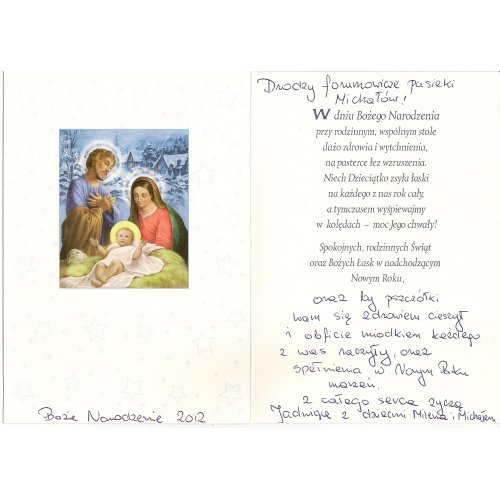 Boże Narodzenie 2012
Drodzy forumowicze pasieki
Michałów!
W dniu Bożego Narodzenia
przy rodzinnym, wspólnym stole
dużo zdrowia i wytchnienia,
na pasterce łez wzruszenia.
Niech Dzieciątko zsyła łaski
na każdego z nas rok cały,
a tymczasem wyśpiewajmy
w kolędach – moc Jego chwały!
Spokojnych, rodzinnych Świąt
oraz Bożych Łask w nadchodzącym
Nowym Roku,
oraz by pszczółki
wam się zdrowiem cieszył
i obficie miodkiem każdego
z was raczyły, oraz
spełnienia w Nowym Roku
marzeń,
z całego serca życzą
Jadwiga z dziećmi Mileną i Michałem